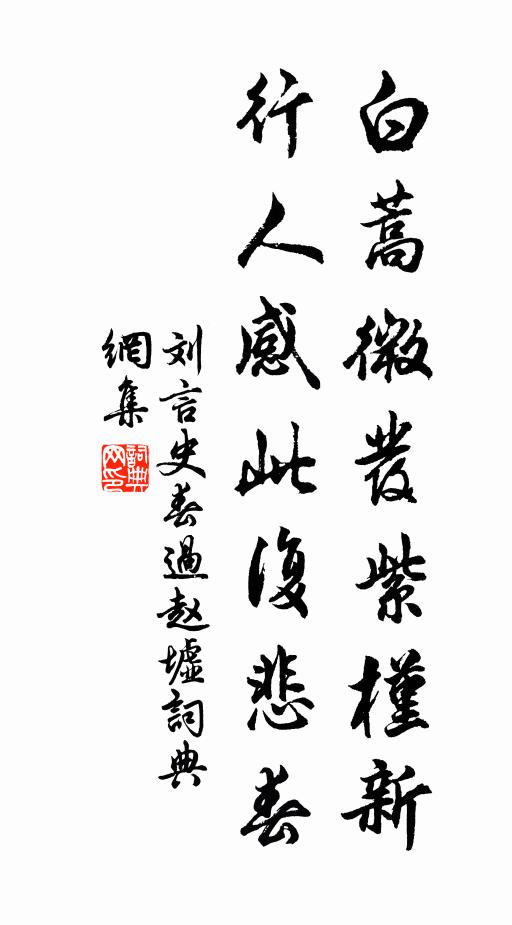 白蒿微發紫槿新
行人感此復悲春
刘言史春過赵墟詞典
網集
詞典
网印